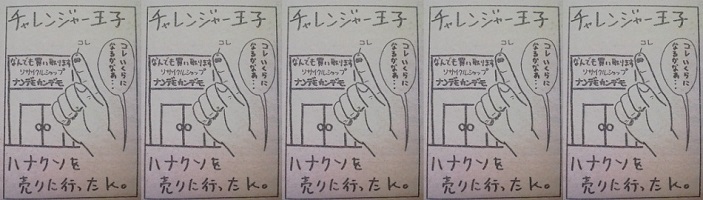 チャレンジャー王子
コレ
コレいくらに
なるかなあ…
なんでも買い取ります
リサイクルショップ
ナンデモカンデモ
ハナクソを
売りに行ったK。
チャレンジャー王子
コレ
コレいくらに
なるかなあ…
なんでも買い取ります
リサイクルショップ
ナンデモカンデモ
ハナクソを
売りに行ったK。
チャレンジャー王子
コレ
コレいくらに
なるかなあ…
なんでも買い取ります
リサイクルショップ
ナンデモカンデモ
ハナクソを
売りに行ったK。
チャレンジャー王子
コレ
コレいくらに
なるかなあ…
なんでも買い取ります
リサイクルショップ
ナンデモカンデモ
ハナクソを
売りに行ったK。
チャレンジャー王子
コレ
コレいくらに
なるかなあ…
なんでも買い取ります
リサイクルショップ
ナンデモカンデモ
ハナクソを
売りに行ったK。